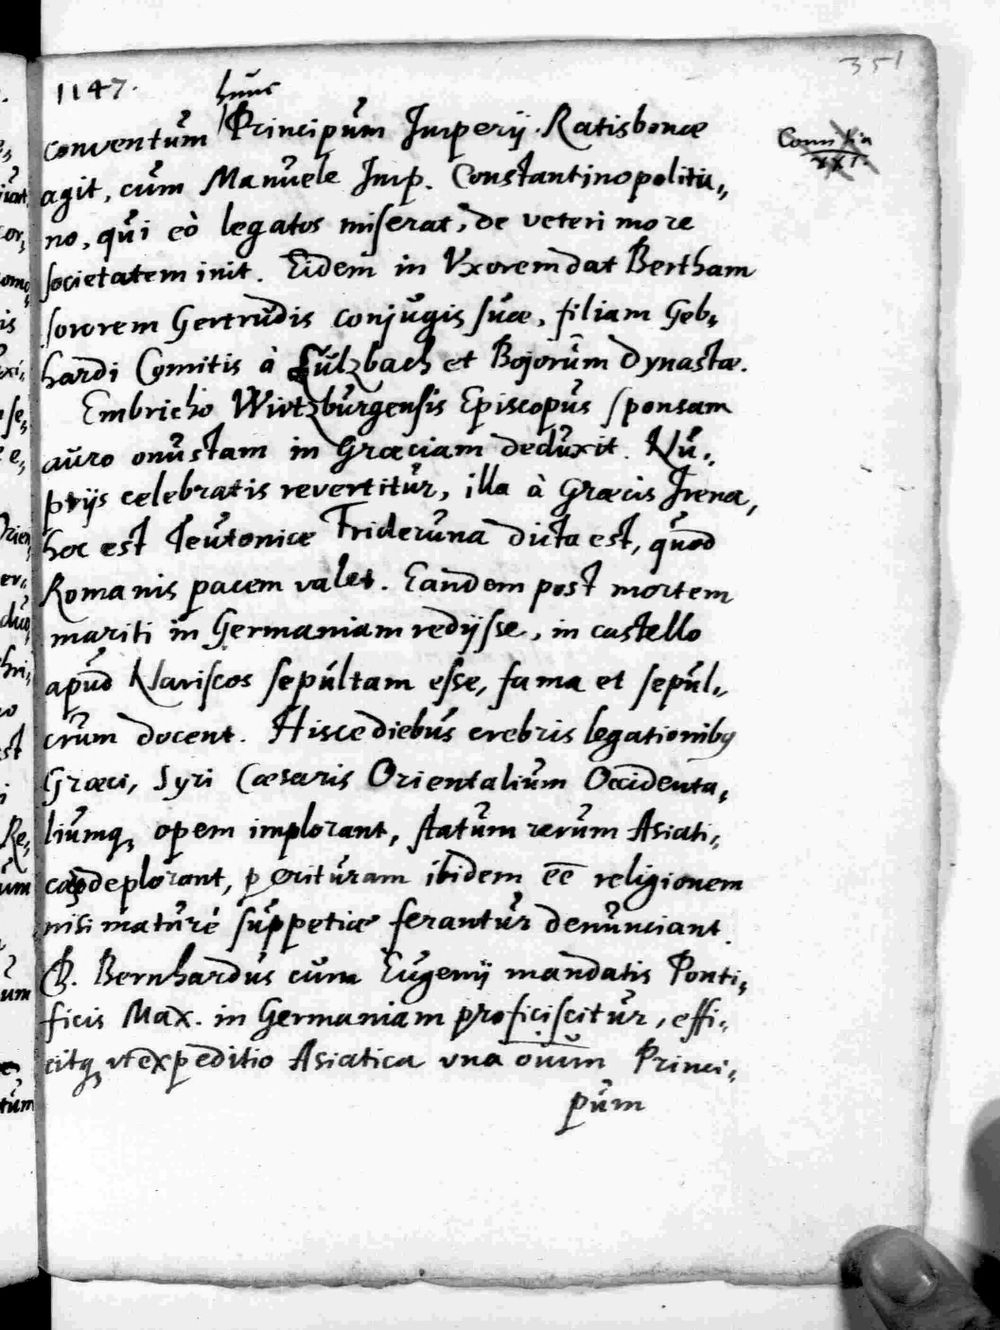 351
1147.
hunc
conventum Principum Imperij Ratisbonæ
Comitia
agit, cum Manuele Imp. Constantinopolita„
no, qui eò legatos miserat, de veteri more
societatem init. Eidem in Vxorem dat Bertham
sororem Gertrudis conjugis suæ, filiam Geb„
hardi Comitis à Sulzbach et Bojorum Dynastæ.
Embricho Wirtzburgensis Episcopus sponsam
auro onustam in Græciam deduxit. Nu„
ptijs celebratis revertitur, illa à Græcis Irena,
hoc est Teutonice Frideruna dicta est, quod
Romanis pacem valet. Eandem post mortem
mariti in Germaniam redijsse, in castello
apud Nariscos sepultam esse, fama et sepul„
crum docent. Hisce diebus crebris legationibus
Græci, Syri Cæsaris Orientalium Occidenta„
liumq, opem implorant, statum rerum Asiati„
deplorant, perituram ibidem eē religionem
nisi maturé suppetiæ ferantur denunciant.
B. Bernhardus cum Eugenij mandatis Ponti„
ficis Max. in Germaniam proficiscitur, effi„
citq, vt expeditio Asiatica vna oīum Princi„
pum